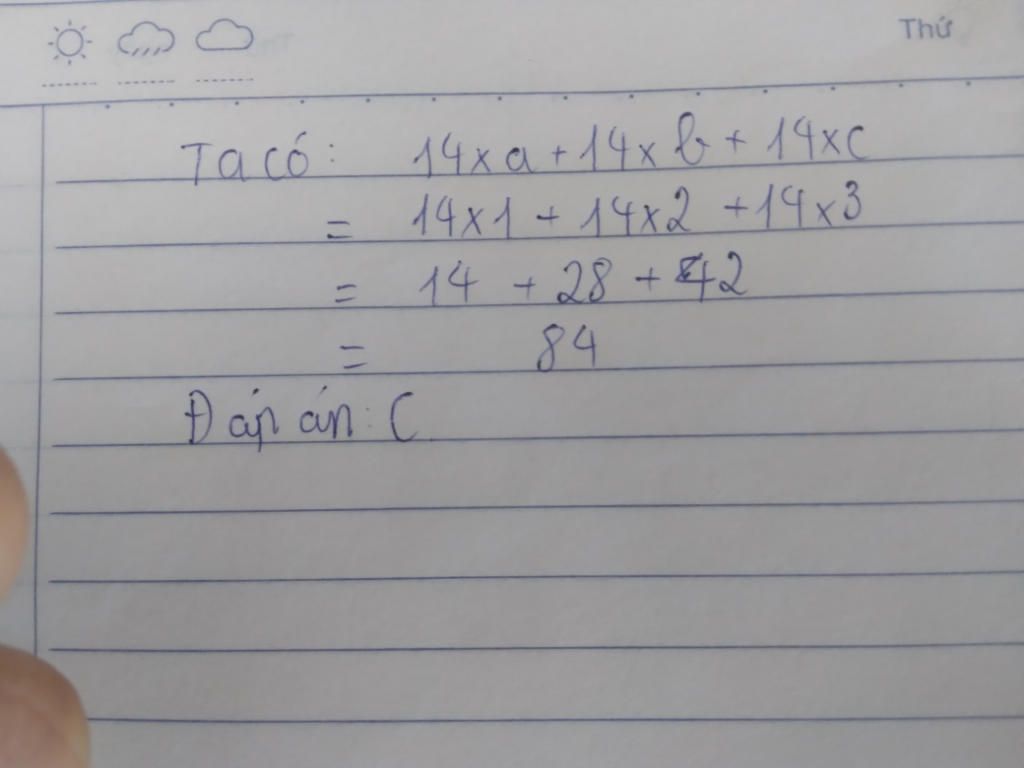 Thứ
Ta có: 14 x a + 14 x b + 14 x c
= 14 x 1 + 14 x 2 + 14 x 3
= 14 + 28 + 42
= 84
Đáp án: C